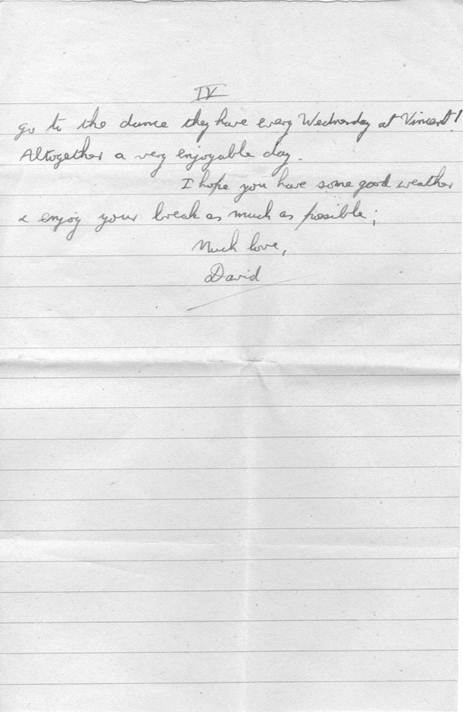 IV
go to the dance they have every Wednesday at Vincent!
Altogether a very enjoyable day.
I hope you have some good weather
& enjoy your break as much as possible;
Much love,
David